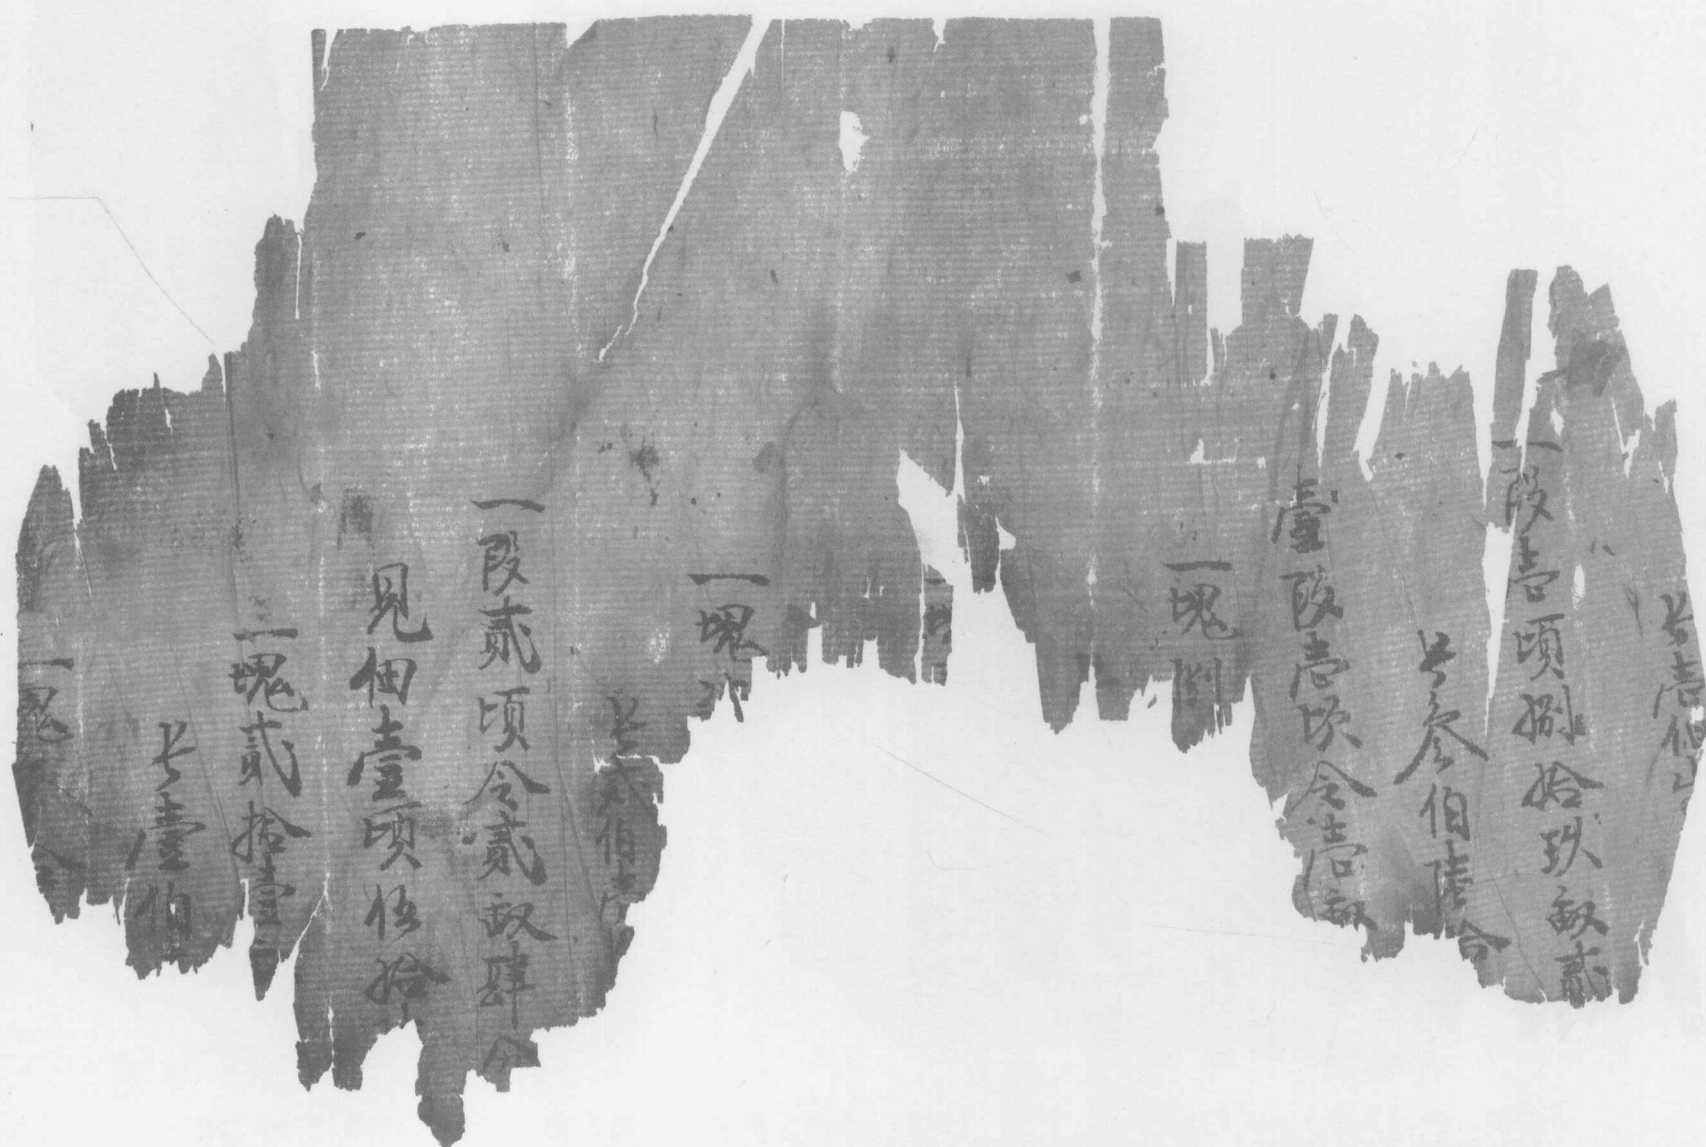 長壹伯
一段壱頃捌拾玖畝貳
長叄伯陸合
壹段壱頃令壱畝
一塊捌
一塊
一塊
長弍伯壱
一段貳頃令貳畝肆分
見佃壹頃伍拾
一塊貳拾壹
長壹伯
一塊